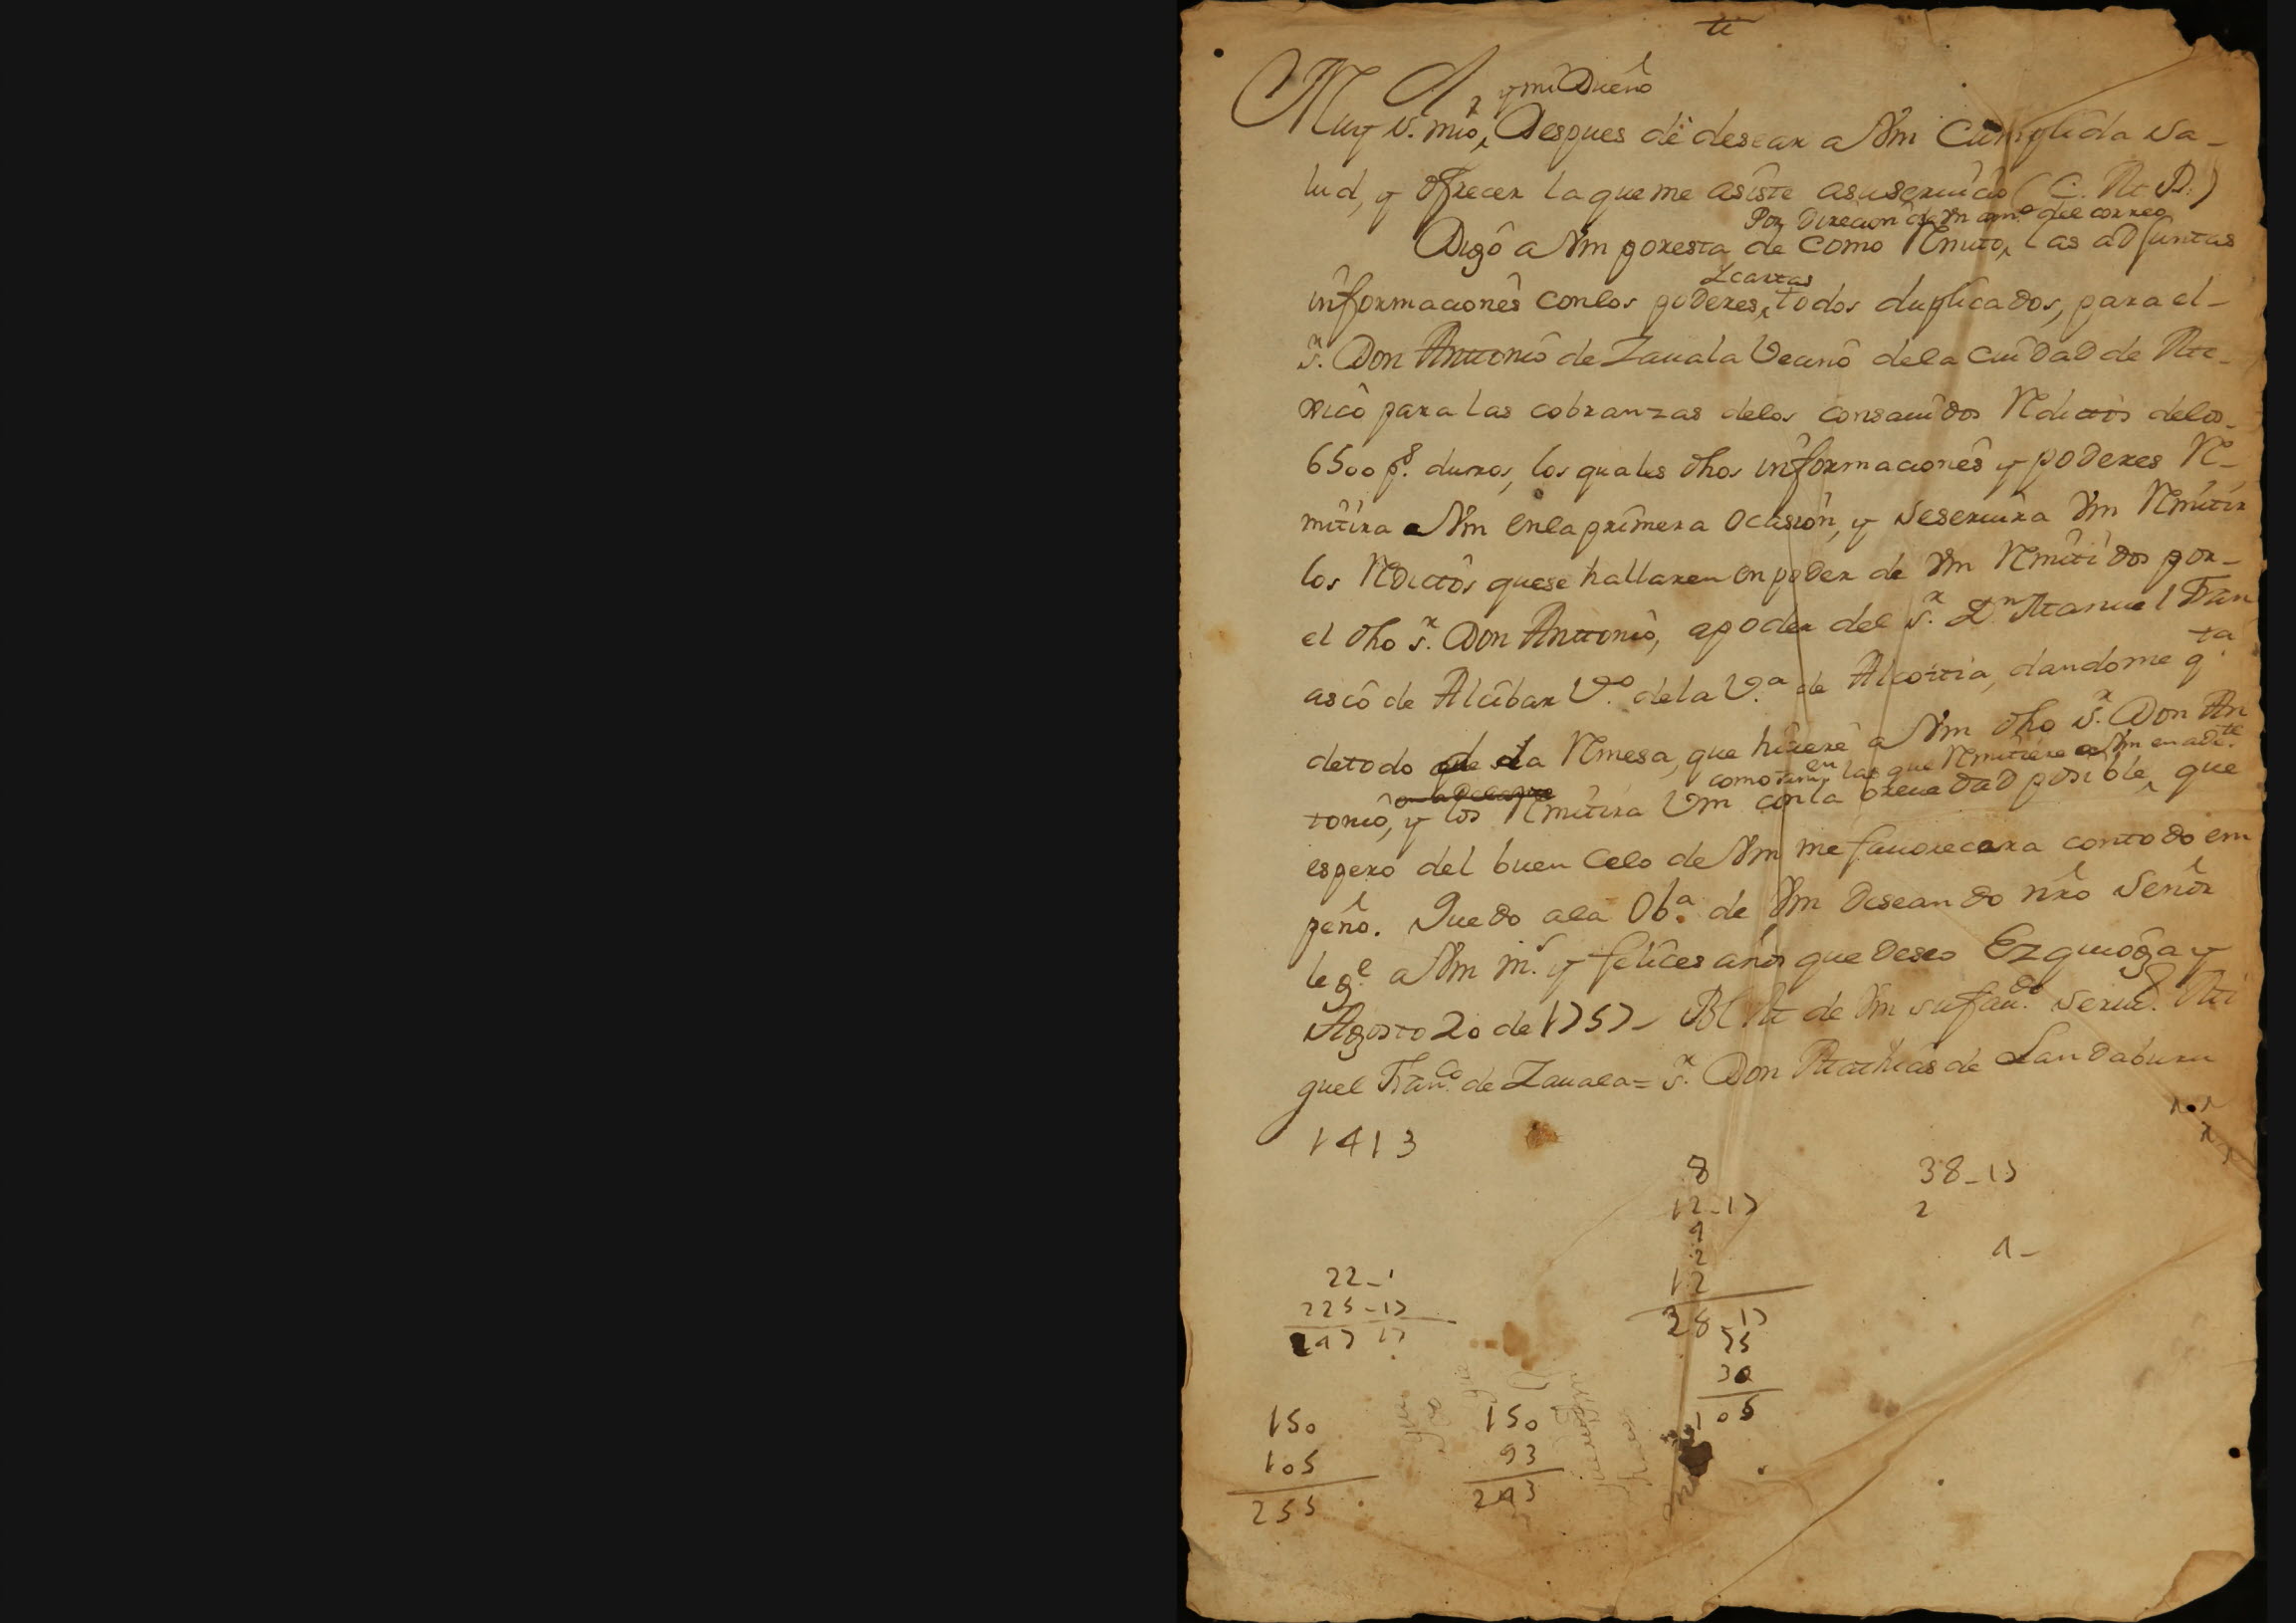 y mi Dueño
Muy S. mio, Despues de desear a Vm Cumplida Sa-
lud, y ofrecer la que me asiste a su seruicio (C. M. D.)
Por direcion de Vn am.º del correo
Digo a Vm por esta de como Remito, las adjuntas
Y cartas
informaciones con los poderes, todos duplicados, para el-
S.r Don Anttonio de Zauala Vecino de la Ciudad de Me-
xico para las cobranzas de los consauidos Redittos de los-
6500 p.s duros, los quales dhos informaciones y poderes Re-
mitira a Vm en la primera Ocasion, y se seruira Vm Remitir
los Redittos que se hallaren en poder de Vm Remitidos por-
el dho S.r Don Anttonio, a poder del S.r Dn Manuel Fran
asco de Alcibar V.º de la V.a de Alcoitia, dandome q.ta
de todo de la Remesa, que hiciere a Vm dho S.r Don An
como tamn en las que Remitiere a Vm en ad.te
tonio, y los Remitira Vm con la breuedad posible, que
espero del buen Celo de Vm me fauorecera con todo em
peño. Quedo a la Ob.a de Vm Deseando nro Señor
le g.e a Vm m.s y felices años que Deseo Ezquioga y
Agosto 20 de 1757 - BLM de Vm su fau.do seru.r Mi
guel Fran.co de Zauala = S.r Don Mathias de Landaburu
1413
8
12-17
9
2
12
38 17
75
30
105
38-17
2
1-
22-1
225-17
247 17
150
105
255
150
93
243